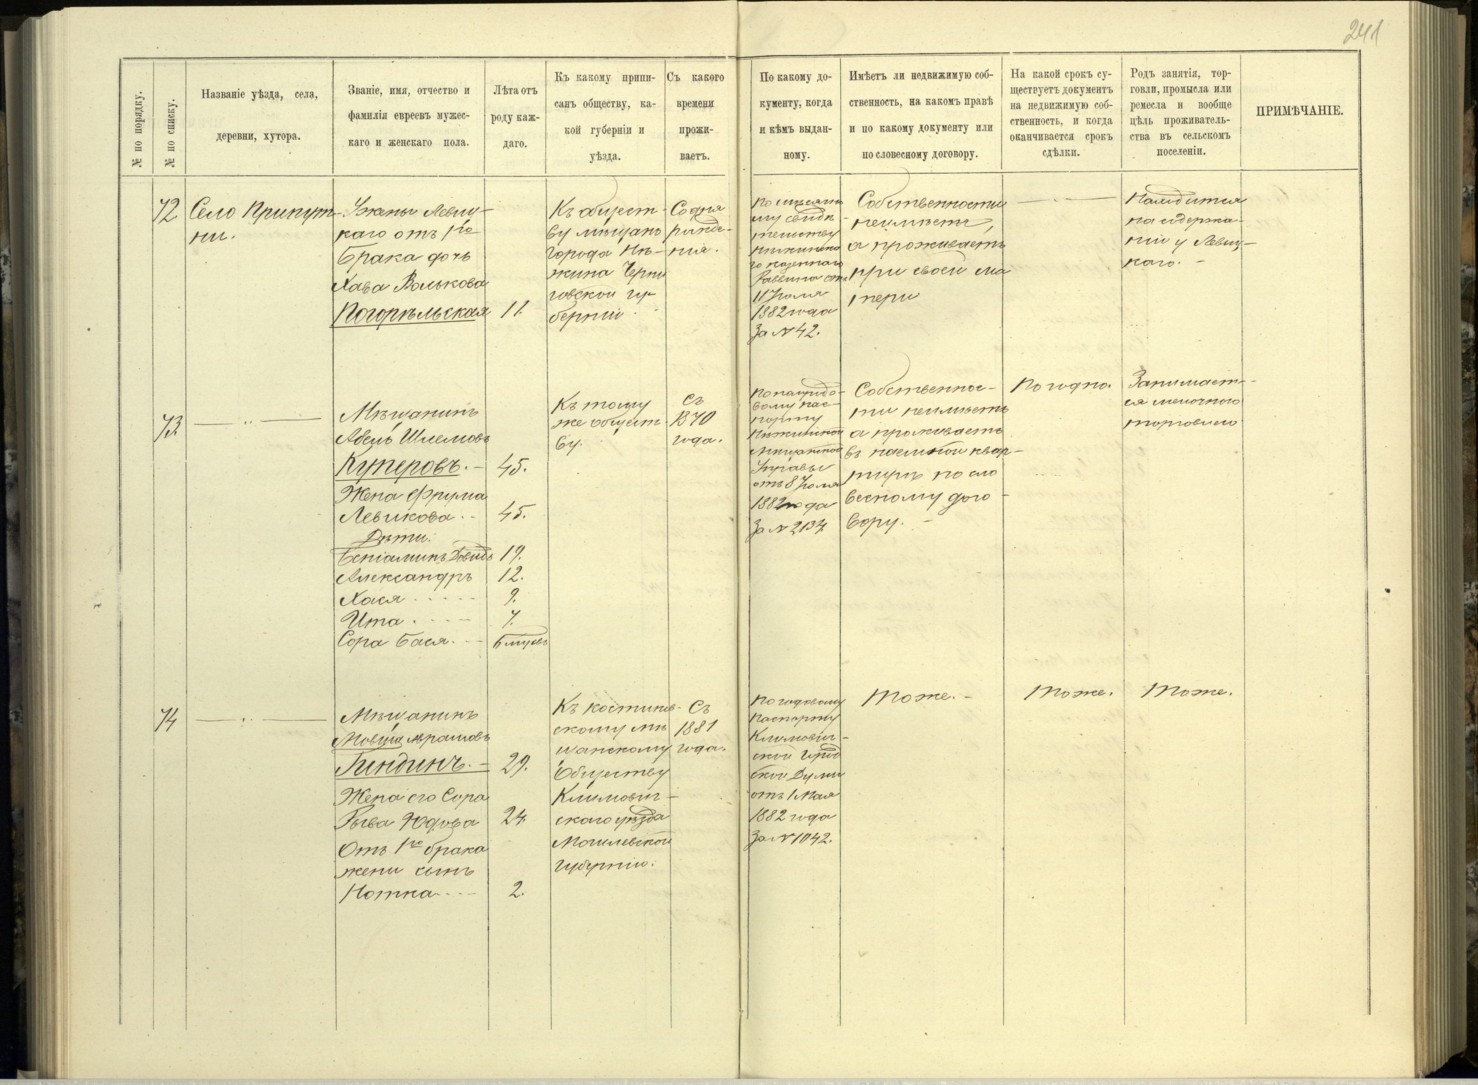 241
№ по порядку.
№ по списку.
Названіе уѣзда, села,
деревни, хутора.
Званіе, имя, отчество и
фамилія евреевъ мужес-
каго и женскаго пола.
Лѣта отъ
роду каж-
даго.
Къ какому припи-
санъ обществу, ка-
кой губерніи и
уѣзда.
Съ какого
времени
прожи-
ваетъ.
По какому до-
кументу, когда
и кѣмъ выдан-
ному.
Имѣетъ ли недвижимую соб-
ственность, на какомъ правѣ
и по какому документу или
по словесному договору.
На какой срокъ су-
ществуетъ документъ
на недвижимую соб-
ственность, и когда
оканчивается срокъ
сдѣлки.
Родъ занятія, тор-
говли, промысла или
ремесла и вообще
цѣль проживатель-
ства въ сельскомъ
поселеніи.
ПРИМѢЧАНІЕ.
72
Село Припут-
ни.
Ужены Левиц-
каго отъ 1го
брака дочь
Хава Волькова
Погорѣльская
11.
Къ общест-
ву мѣщанъ
города Нѣ-
жина Черни
говской гу-
берніи.
Со дня
рожде-
нія.
11 Іюля
1882 года
За № 42.
Собственности
неимѣетъ,
а проживаетъ
при своей ма
тери
Находится
на содержа-
ніи у Левиц-
каго.
73
Мѣщанинъ
Абель Шлемовъ
Куперовъ.
45.
Жена Фрума
Левикова
45.
Дѣти:
Беніаминъ Довидъ
19.
Александръ
12.
Хася
9.
Ита
7.
Сора Бася
Къ тому
же общест-
ву.
Съ
1870
года.
Нѣжинской
Мѣщанской
Управы
отъ 8 Іюля
1882 года
За № 2137
Собственнос-
ти неимѣетъ
а проживаетъ
въ наемной квар-
тирѣ по сло
весному дого-
вору.
Погодно.
Занимает-
ся мелочного
торговлею
74
Мѣщанинъ
Мовша Абрамовъ
Гиндинъ.
29.
Жена его Сора
Рыва Юдова
24
Отъ 1го брака
жены сынъ
Нотка
2.
скому мѣ
щанскому
Обществу
Климович-
скаго уѣзда
Могилевской
губерніи.
Съ
1881
года.
По годовому
паспорту
Климович-
ской Город
ской Думы
отъ 1 Мая
1882 года
За № 1042.
Тоже.
Тоже.
Тоже.